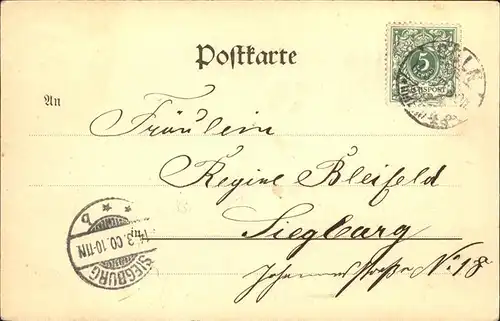 Postkarte
CÖLN
5
REICHSPOST
An
Fräulein
Regine Bleifeld
Siegburg
Johannesstraße No 18
SIEGBURG
3. 00. 10-11N
b